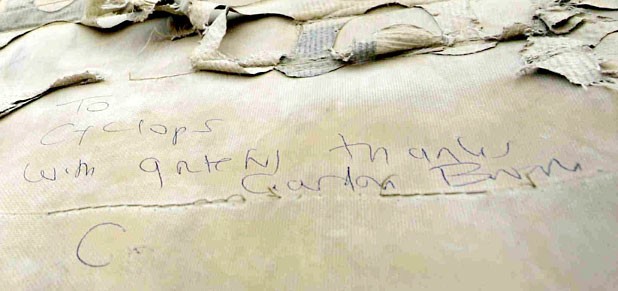 To
Cyclops
with grateful thanks
Gordon Brown
C